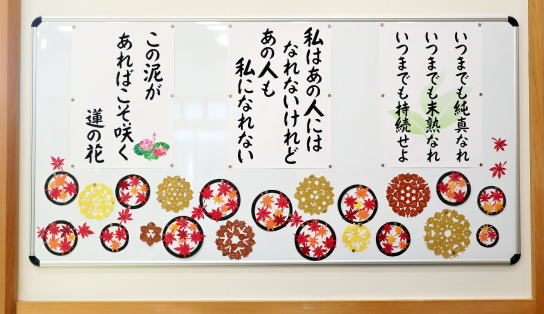 いつまでも純真なれ
いつまでも未熟なれ
いつまでも持続せよ
私はあの人には
なれないけれど
あの人も
私になれない
この泥が
あればこそ咲く
蓮の花